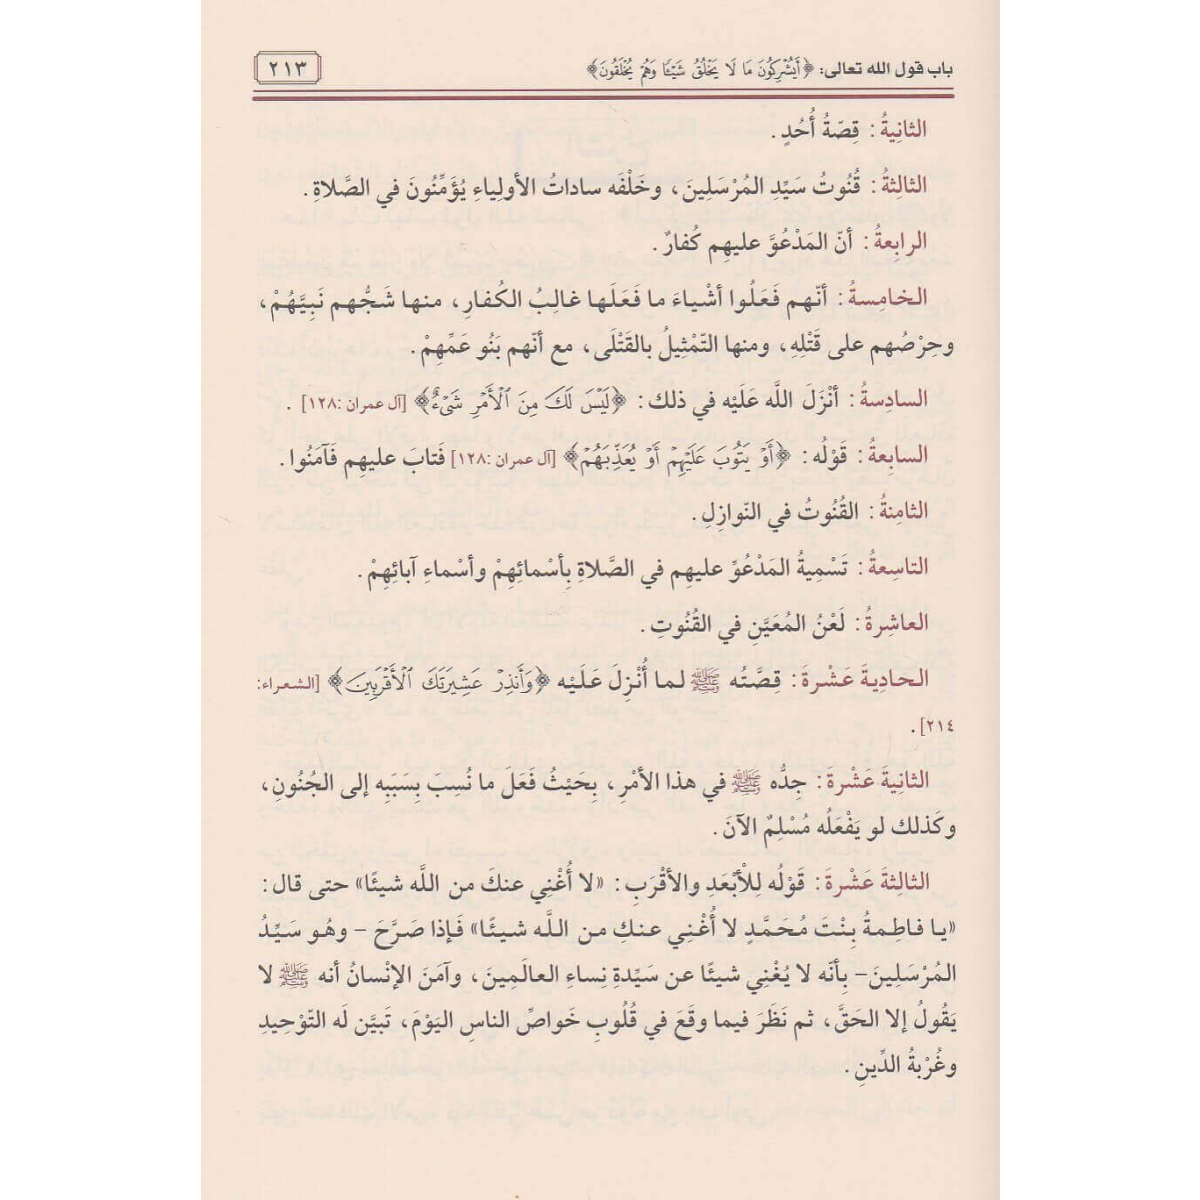 باب قول الله تعالى: ﴿أَيُشْرِكُونَ مَا لَا يَخْلُقُ شَيْئًا وَهُمْ يُخْلَقُونَ﴾ ٢١٣
الثانِيةُ: قِصّةُ أُحُدٍ.
الثالِثةُ: قُنُوتُ سَيِّدِ المُرْسَلِينَ، وخَلْفَه ساداتُ الأولِياءِ يُؤَمِّنُونَ في الصَّلاةِ.
الرابِعةُ: أنّ المَدْعُوَّ عليهِم كُفارٌ.
الخامِسةُ: أنّهم فَعَلُوا أشْياءَ ما فَعَلَها غالِبُ الكُفارِ، منها شَجُّهم نَبِيَّهُمْ،
وحِرْصُهم على قَتْلِهِ، ومنها التّمْثِيلُ بالقَتْلَى، مع أنّهم بَنُو عَمِّهِمْ.
السادِسةُ: أنْزَلَ اللَّه عَلَيْه في ذلك: ﴿لَيْسَ لَكَ مِنَ ٱلْأَمْرِ شَىْءٌ﴾ [آل عمران: ١٢٨].
السابِعةُ: قَوْلُه: ﴿أَوْ يَتُوبَ عَلَيْهِمْ أَوْ يُعَذِّبَهُمْ﴾ [آل عمران: ١٢٨] فَتابَ عليهِم فَآمَنُوا.
الثامِنةُ: القُنُوتُ في النّوازِلِ.
التاسِعةُ: تَسْمِيةُ المَدْعُوِّ عليهِم في الصَّلاةِ بِأسْمائِهِمْ وأسْماءِ آبائِهِمْ.
العاشِرةُ: لَعْنُ المُعَيَّنِ في القُنُوتِ.
الحادِيةَ عَشْرةَ: قِصَّتُه ﷺ لما أُنْزِلَ عَلَيْه ﴿وَأَنذِرْ عَشِيرَتَكَ ٱلْأَقْرَبِينَ﴾ [الشعراء:
٢١٤].
الثانِيةَ عَشْرةَ: جِدُّه ﷺ في هذا الأمْرِ، بِحَيْثُ فَعَلَ ما نُسِبَ بِسَبَبِه إلى الجُنُونِ،
وكَذلك لو يَفْعَلُه مُسْلِمٌ الآنَ.
الثالِثةَ عَشْرةَ: قَوْلُه لِلْأبْعَدِ والأقْرَبِ: «لا أُغْنِي عنكَ من اللَّه شيئًا» حتى قال:
«يا فاطِمةُ بِنْتَ مُحَمَّدٍ لا أُغْنِي عنكِ من اللَّه شيئًا» فَإذا صَرَّحَ - وهُو سَيِّدُ
المُرْسَلِينَ- بِأنّه لا يُغْنِي شيئًا عن سَيِّدةِ نِساءِ العالَمِينَ، وآمَنَ الإنْسانُ أنه ﷺ لا
يَقُولُ إلا الحَقَّ، ثم نَظَرَ فيما وقَعَ في قُلُوبِ خَواصِّ الناسِ اليَوْمَ، تَبيَّن لَه التّوْحِيدِ
وغُرْبةُ الدِّينِ.